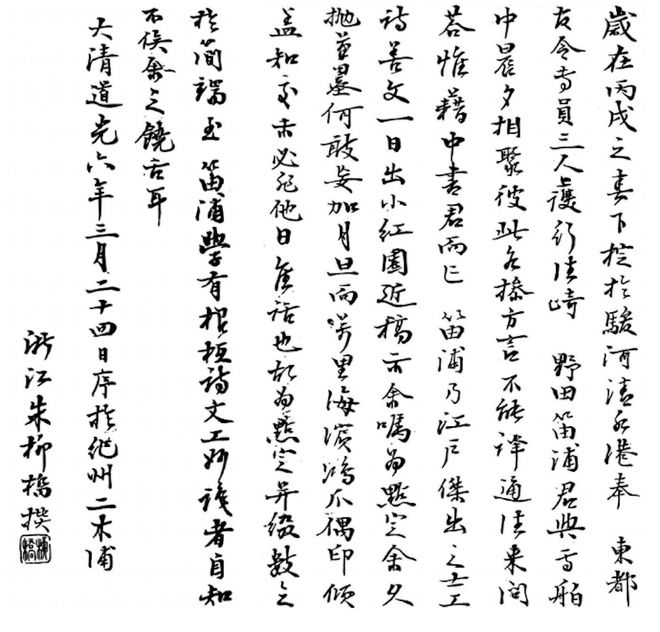 歲在丙戌之春下椗於駿河清水港奉　東都
令專員三人護行往崎　野田笛浦君與予舶
中晨夕相聚彼此各操方言不能譯通往來問
答惟藉中書君而已　笛浦乃江戶傑出之士工
詩善文一日出小紅園近稿示余囑為點定余久
拋筆墨何敢妄加月旦而萬里海濱鴻爪偶印傾
蓋知交未必非他日佳話也故為點定并綴數言
於簡端至笛浦學有根柢詩文工妙識者自知
不俟余之饒舌耳
大清道光六年三月二十四日序於紀州二木浦
浙江朱柳橋撰